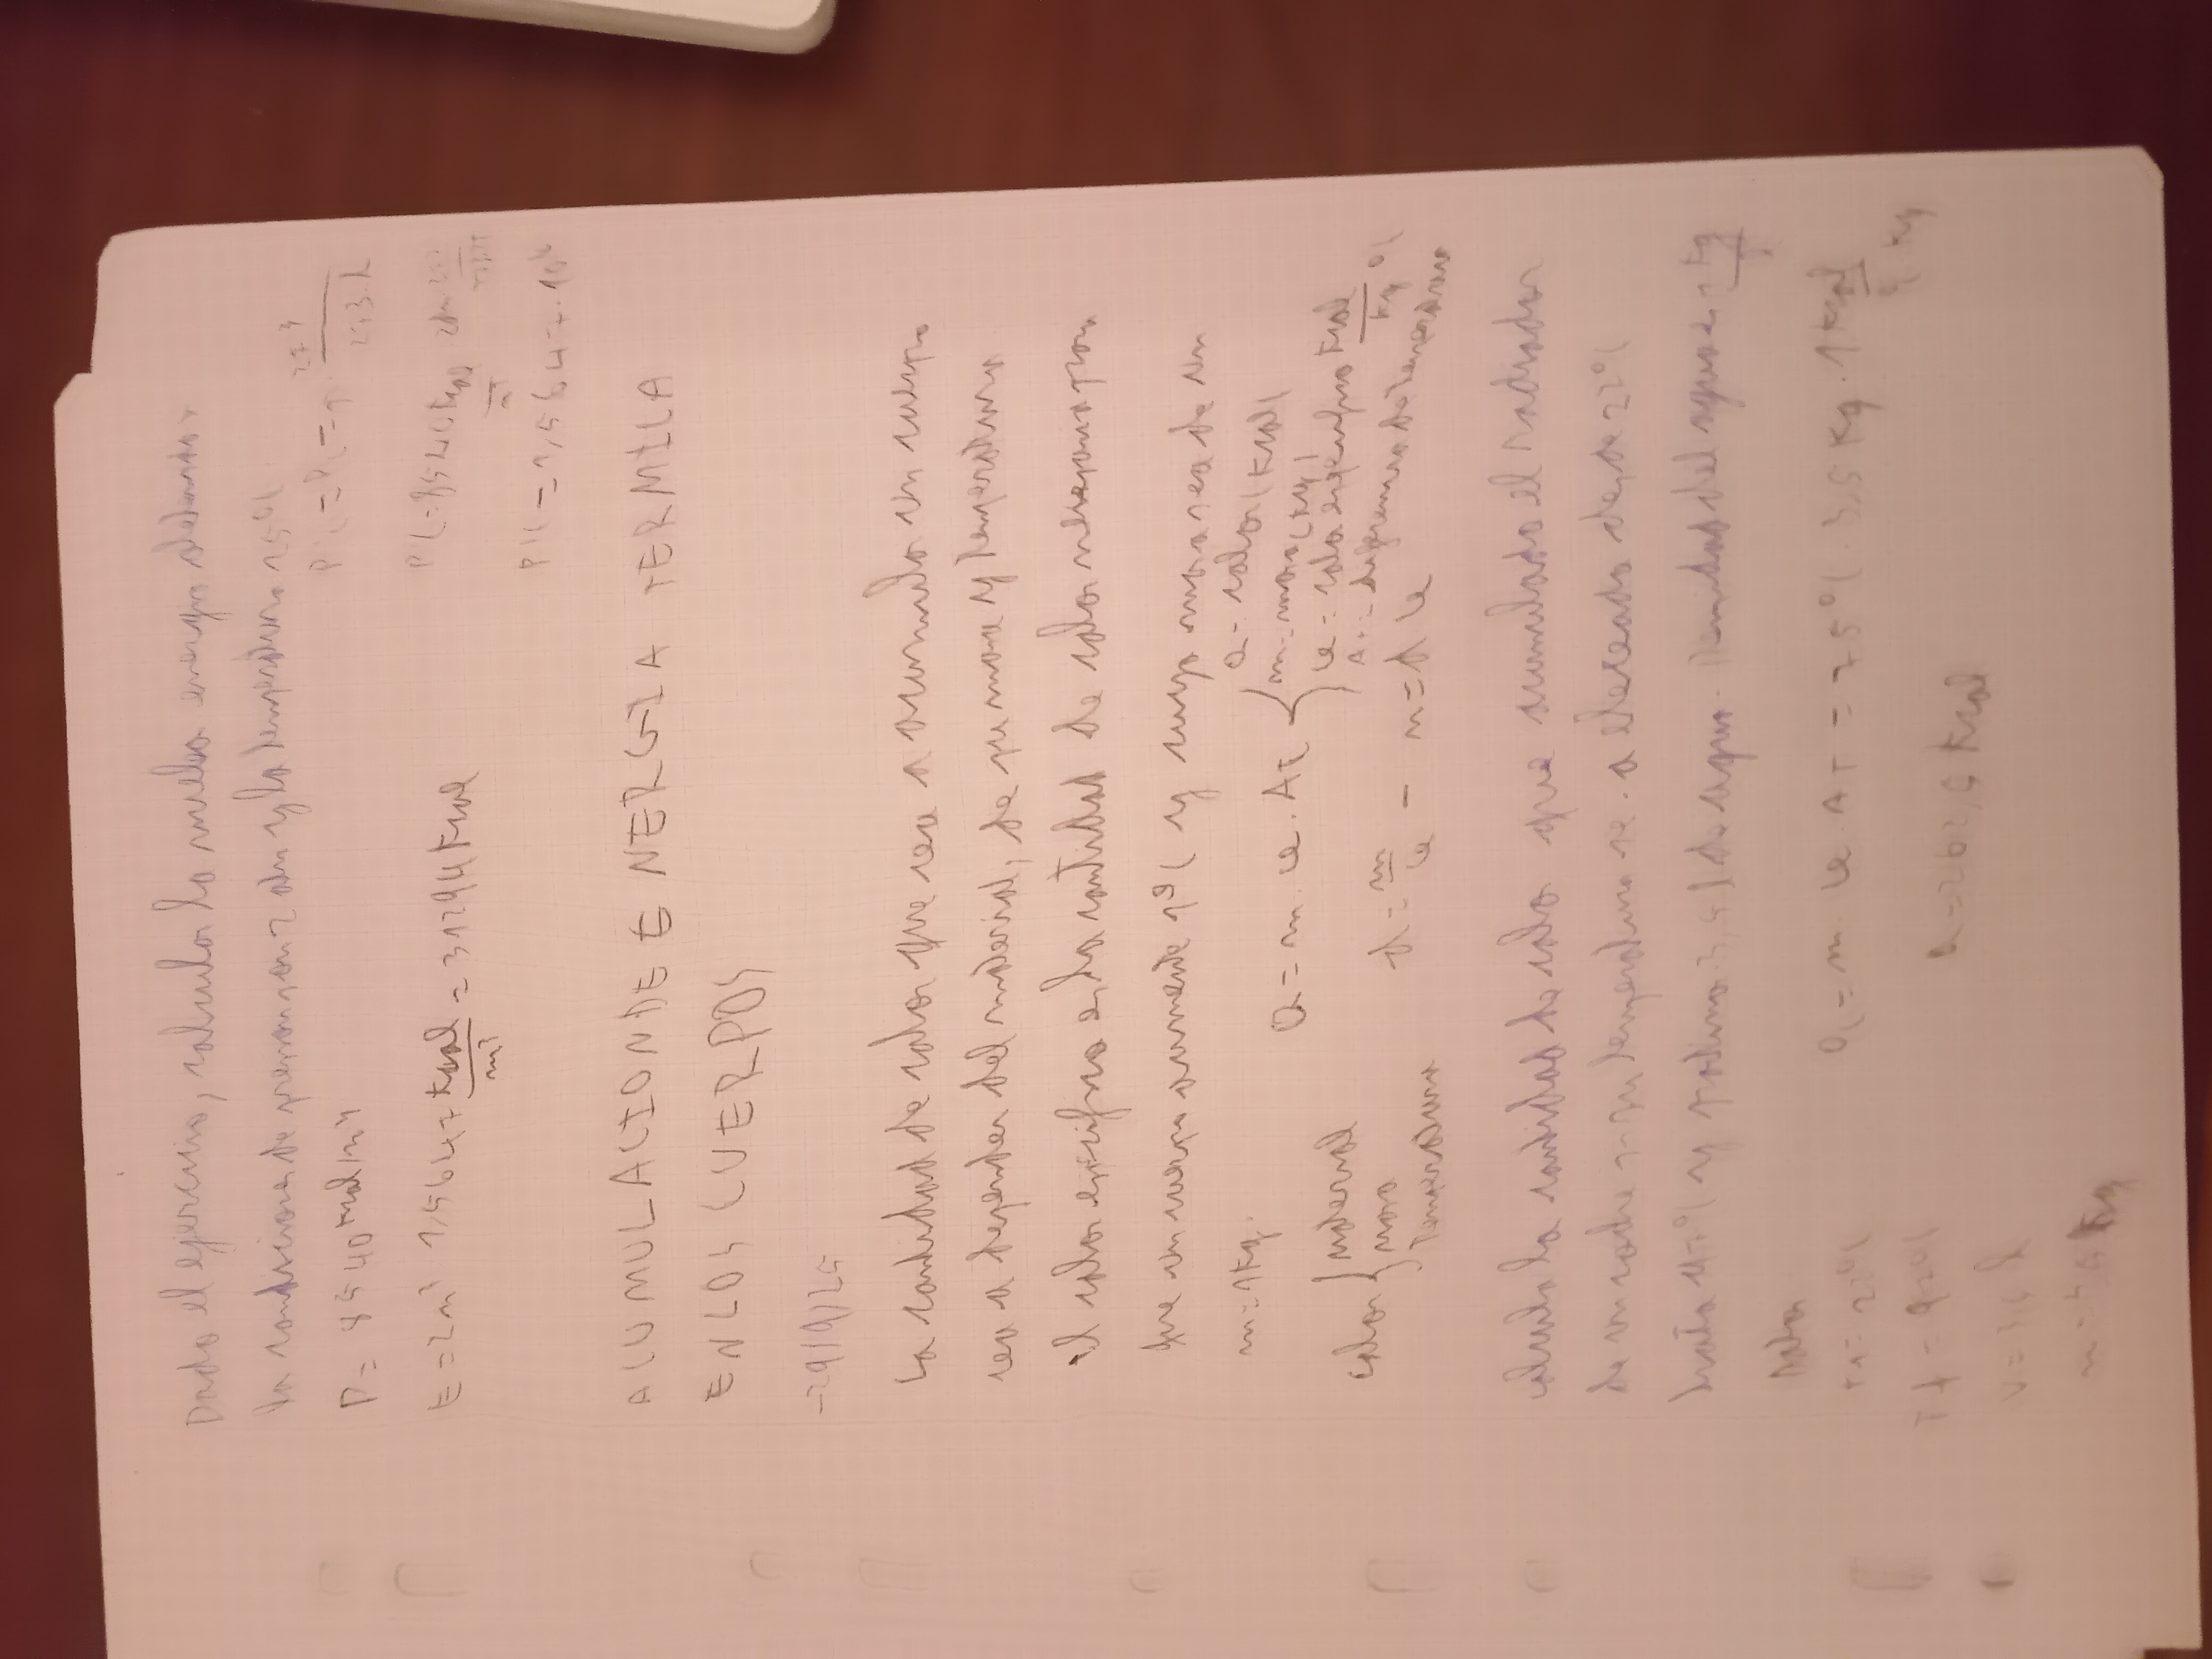 Dado el ejercicio, calcular la nueba energia obtenida
la condiciones de presion son 2 atm y la temperatura 25ºC
P = 8540 kcal/m³
P'C = PC = p · 273 / 273 · t
E = 2m³ 1,5647 kcal/m³ = 31294 Kcal
PC = 8540 kcal/m³ 2atm
P'C = 1,5647 · 10⁴
ACUMULACION DE ENERGIA TERMICA
EN LOS CUERPOS
-29/9/25
La cantidad de calor que va a acumular un cuerpo
va a depender del material, de su masa y temperatura
El calor especifico es la cantidad de calor necesario para
que un cuerpo aumente 1ºC y cuya masa sea de un
m = 1Kg.
Q = m · ce · At
Q = calor (Kcal)
m = masa (Kg)
ce = calor especifico Kcal/Kg ºC
At = diferencia de temperatura
calor { material
masa
Temperatura
d = m/ce - m = d ce
calcula la cantidad de calo que acumulado el radiador
de un coche si su temperatura se a elevado desde 22ºC
hasta 97ºC y 3,5 l de agua. Densidad del agua es 1 Kg/l
Datos
T1 = 22ºC
Q = m · ce · AT = 75ºC · 3,5 Kg · 1 Kcal/ºC Kg
Tf = 97ºC
Q = 262,5 Kcal
V = 3,5 l
m = 3,5 Kg